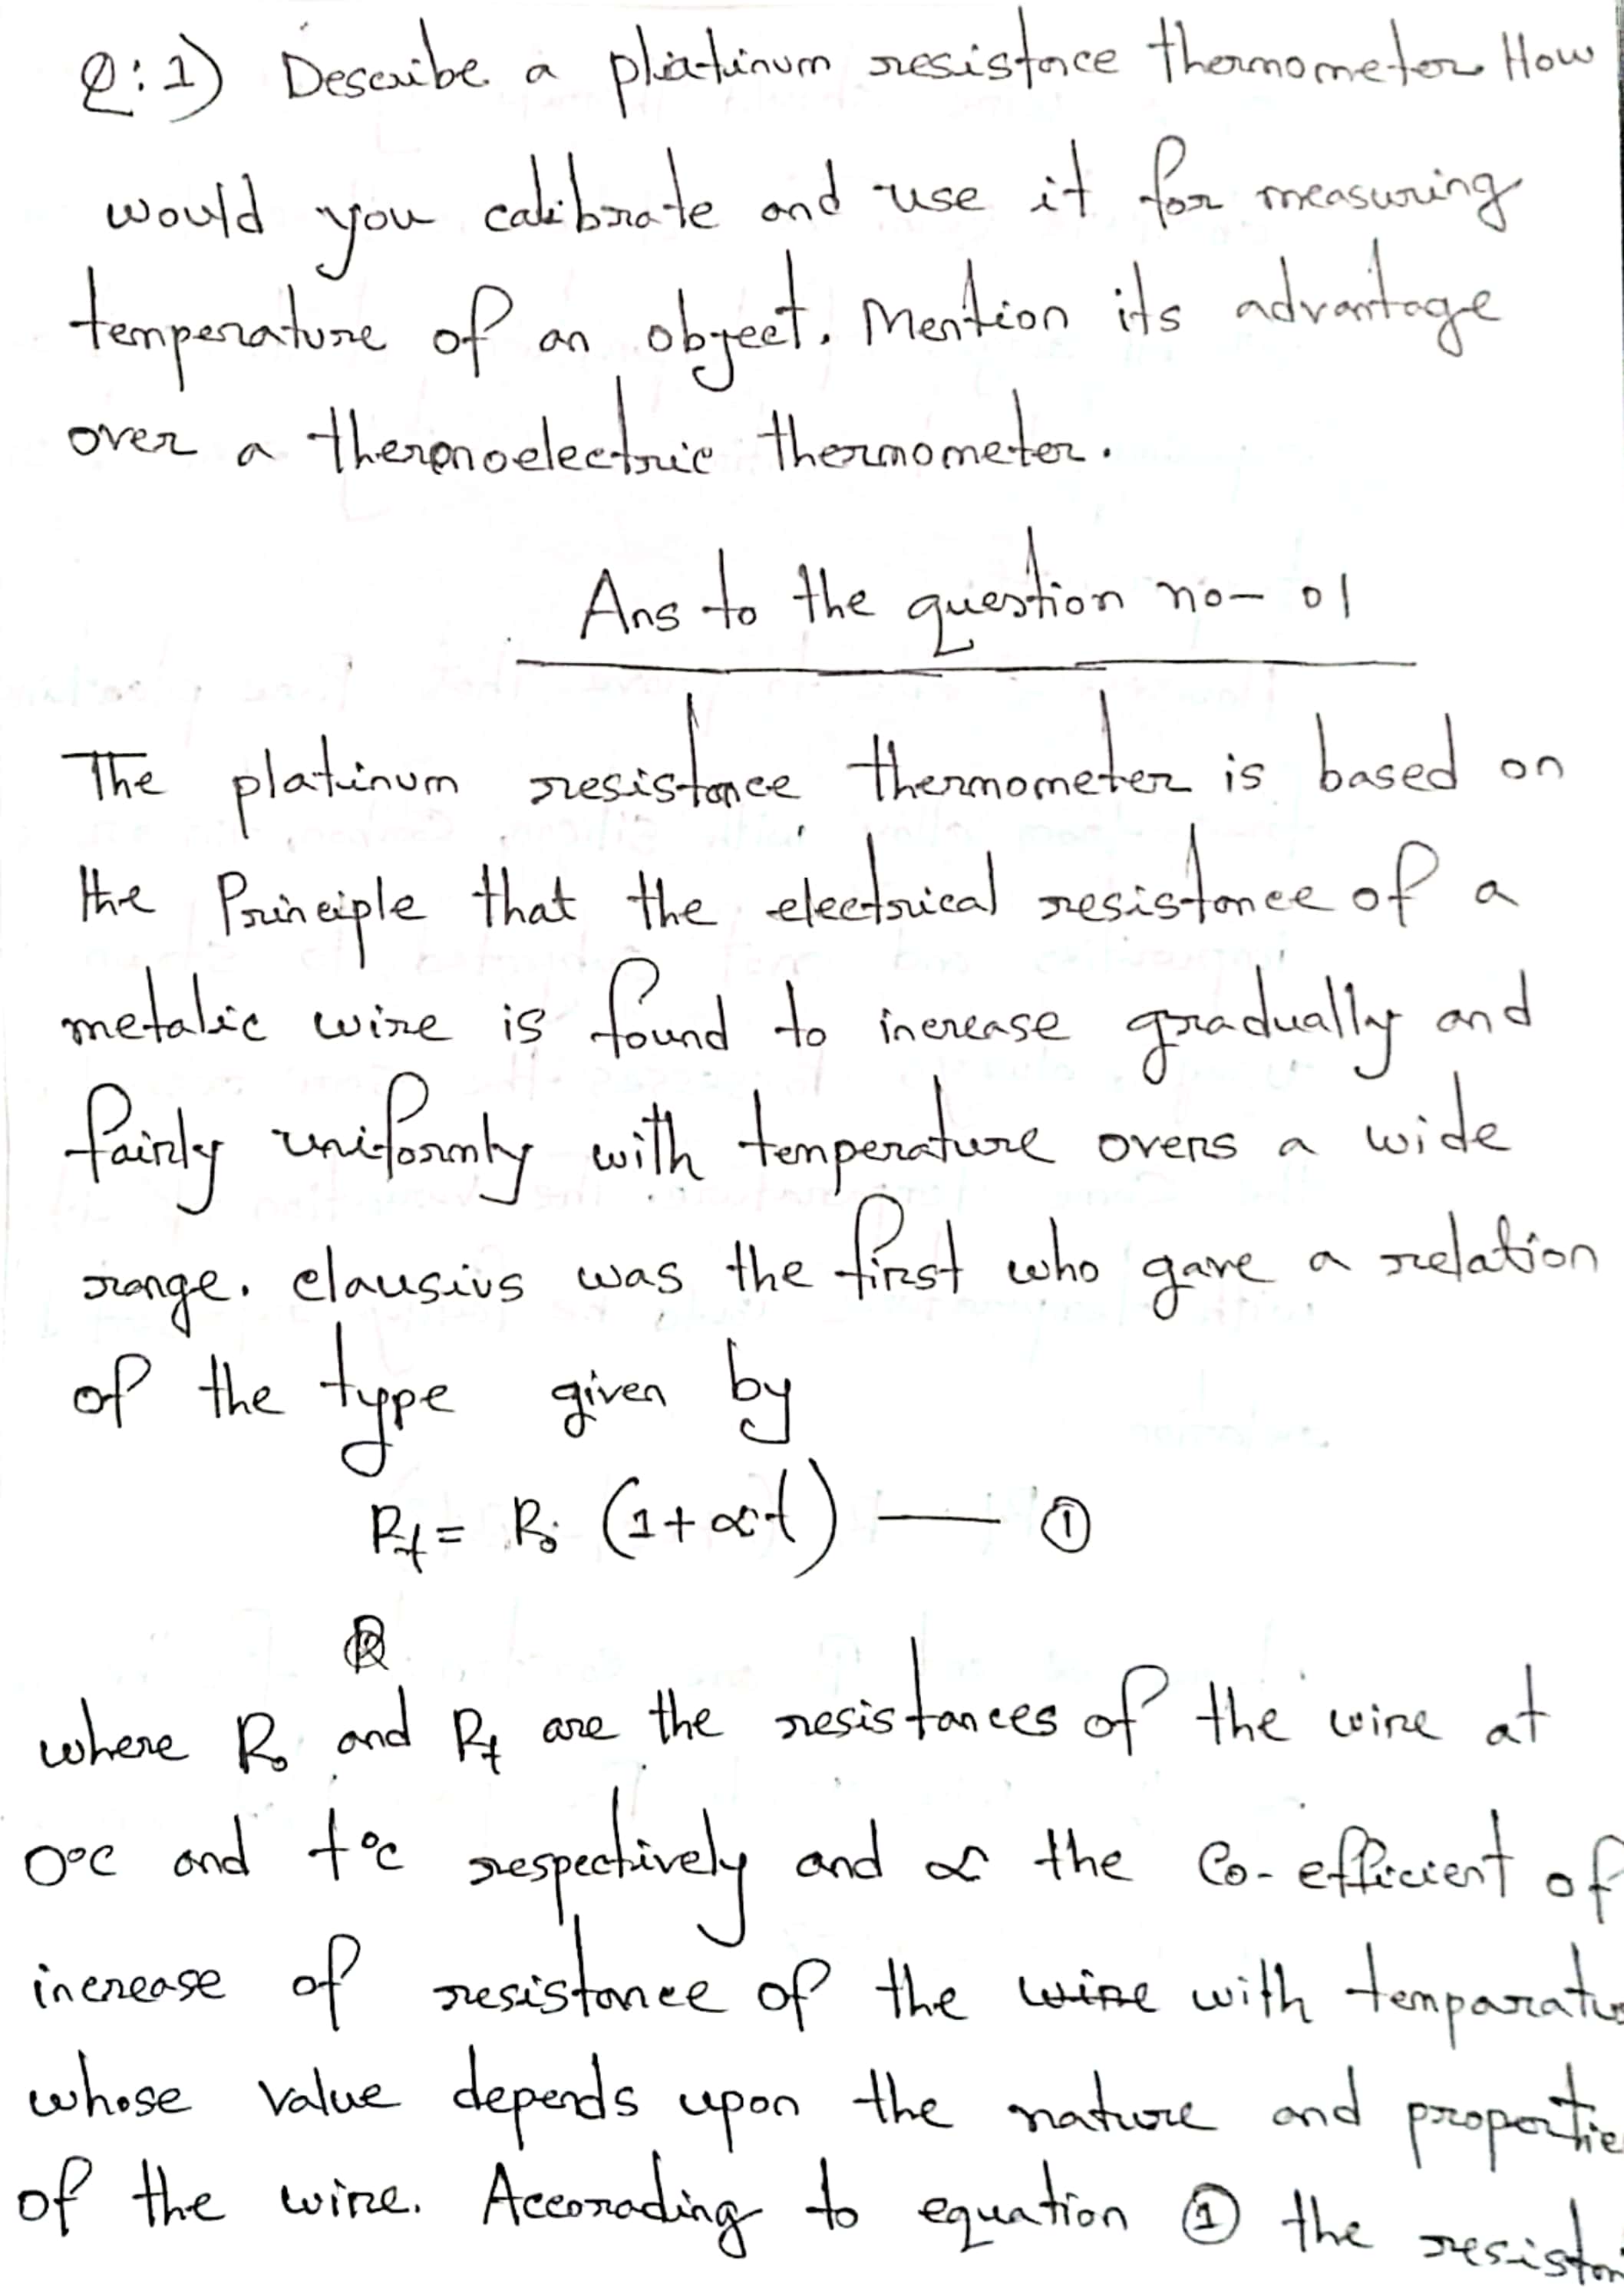 Q:1) Describe a platinum resistance thermometer How
would you calibrate and use it for measuring
temperature of an object. Mention its advantage
over a thermoelectric thermometer.
Ans to the question no- 01
The platinum resistance thermometer is based on
the Principle that the electrical resistance of a
metalic wire is found to increase gradually and
fairly uniformly with temperature overs a wide
range. clausius was the first who gave a relation
of the type given by
Rt = R₀ (1+αt) — ①
where R₀ and Rt are the resistances of the wire at
0°c and t°c respectively and α the Co-efficient of
increase of resistance of the wire with temparatu
whose value depends upon the nature and propertie
of the wire. Accorading to equation ① the